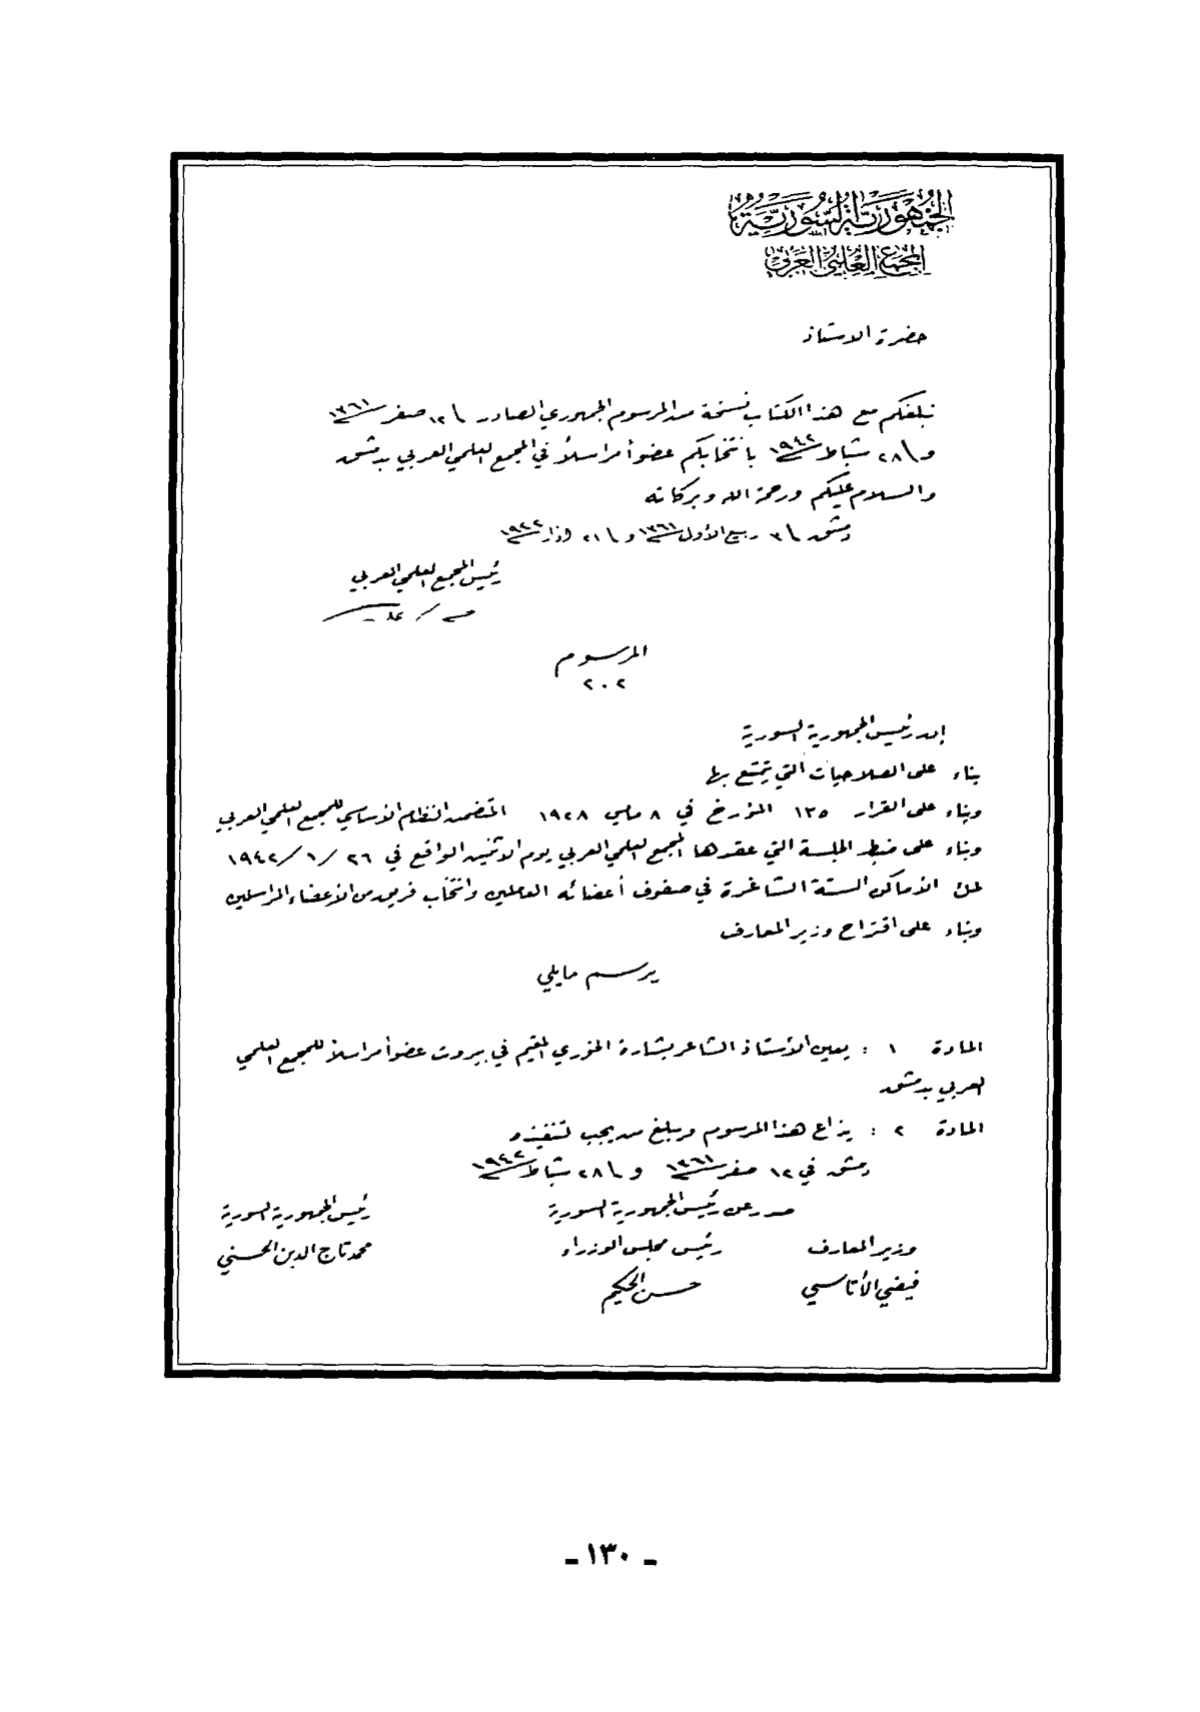 الجمهورية السورية
المجمع العلمي العربي
حضرة الاستاذ
نبلغكم مع هذا الكتاب نسخة من المرسوم الجمهوري الصادر \ ١٢ صفر ١٣٦١
و\٢٨ شباط ١٩٤٢ بانتخابكم عضواً مراسلاً في المجمع العلمي العربي بدمشق
والسلام عليكم ورحمة الله وبركاته
دمشق \ ٣ ربيع الأول ١٣٦١ و \ ٢١ اذار ١٩٤٢
رئيس المجمع العلمي العربي
المرسوم
٢٠٢
إن رئيس الجمهورية السورية
بناء على الصلاحيات التي يتمتع بها
وبناء على القرار ١٣٥ المؤرخ في ٨ مايس ١٩٢٨ المتضمن النظام الأساسي للمجمع العلمي العربي
وبناء على ضبط الجلسة التي عقدها المجمع العلمي العربي يوم الاثنين الواقع في ٢٦ /١/ ١٩٤٢
لملء الأماكن الستة الشاغرة في صفوف أعضائه العاملين وانتخاب فريق من الأعضاء المراسلين
وبناء على اقتراح وزير المعارف
يرسم مايلي
المادة ١ : يعين الأستاذ الشاعر بشارة الخوري المقيم في بيروت عضواً مراسلاً للمجمع العلمي
العربي بدمشق
المادة ٢ : يذاع هذا المرسوم ويبلغ من يجب لتنفيذه
دمشق في ١٢ صفر ١٣٦١ و \٢٨ شباط ١٩٤٢
صدر عن رئيس الجمهورية السورية رئيس الجمهورية السورية
وزير المعارف رئيس مجلس الوزراء محمد تاج الدين الحسني
فيضي الأتاسي حسن الحكيم
- ١٣٠ -